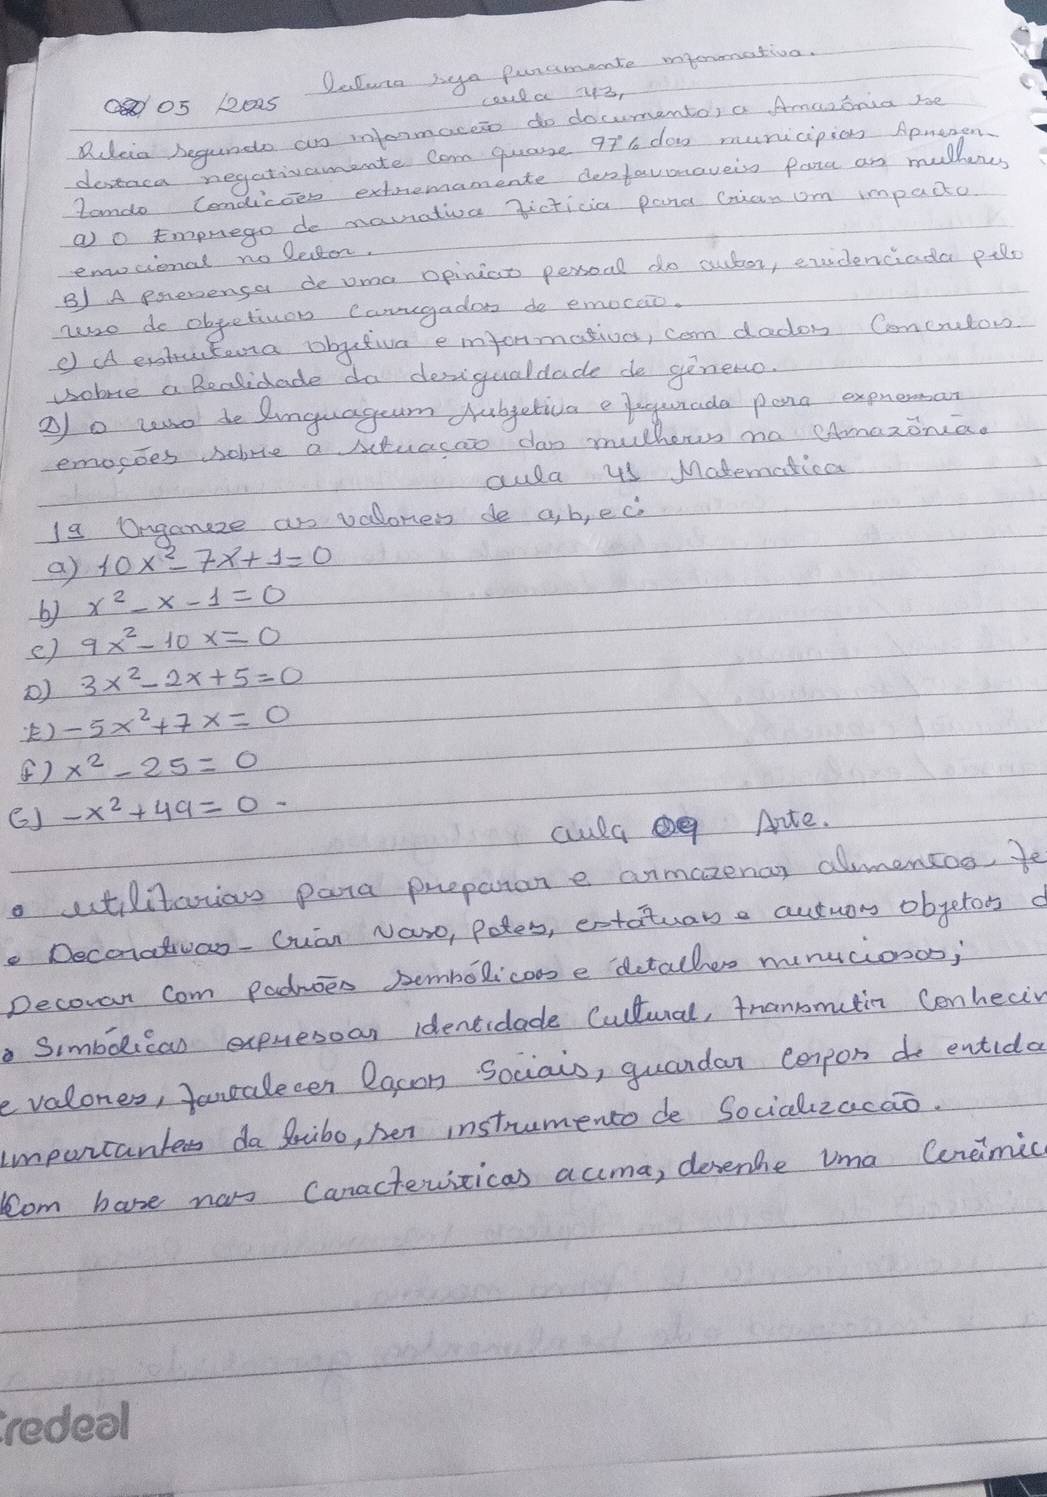 leitura seja puramente informativa.
05 /2025 aula 43,
Releia segundo as informaceio do documento, a Amazônia se
destaca negativamente com quase 97% dos municipios Apresen-
tando condicões extremamente desfavoraveis para as mulheres
a) O Emprego de narrativa ficticia para criar um impacto
emocional no leitor.
B) A presensa de uma opiniao pessoal do autor, evidenciada pelo
uso de objetivos carregados de emocão.
c) A estrutura objetiva e informativa, com dados concretos
sobre a Realidade da desigualdade de gênero.
D) o uso de linguagem subjetiva e figurada para expressar
emoções sobre a situação das mulheres na Amazônia.
aula 41 Matematica
1ª Organize as valores de a, b, e c:
a) 10x² - 7x + 1 = 0
b) x² - x - 1 = 0
c) 9x² - 10x = 0
D) 3x² - 2x + 5 = 0
E) -5x² + 7x = 0
f) x² - 25 = 0
G) -x² + 49 = 0 -
aula 09 Arte.
• utilitarias para preparar e armazenar alimentos, fe
• Decorativas - Criar vaso, potes, estátuas e outros objetos d
Decorar com padrões simbólicos e detalhes minuciosos;
• Simbólicas expressar identidade cultural, transmitir conhecim
e valores, fortalecer laços sociais, guardar corpos de entida
importantes da tribo, ser instrumento de Socializacão.
Com base nas caracteristicas acima, desenhe uma Cerâmic
credeal